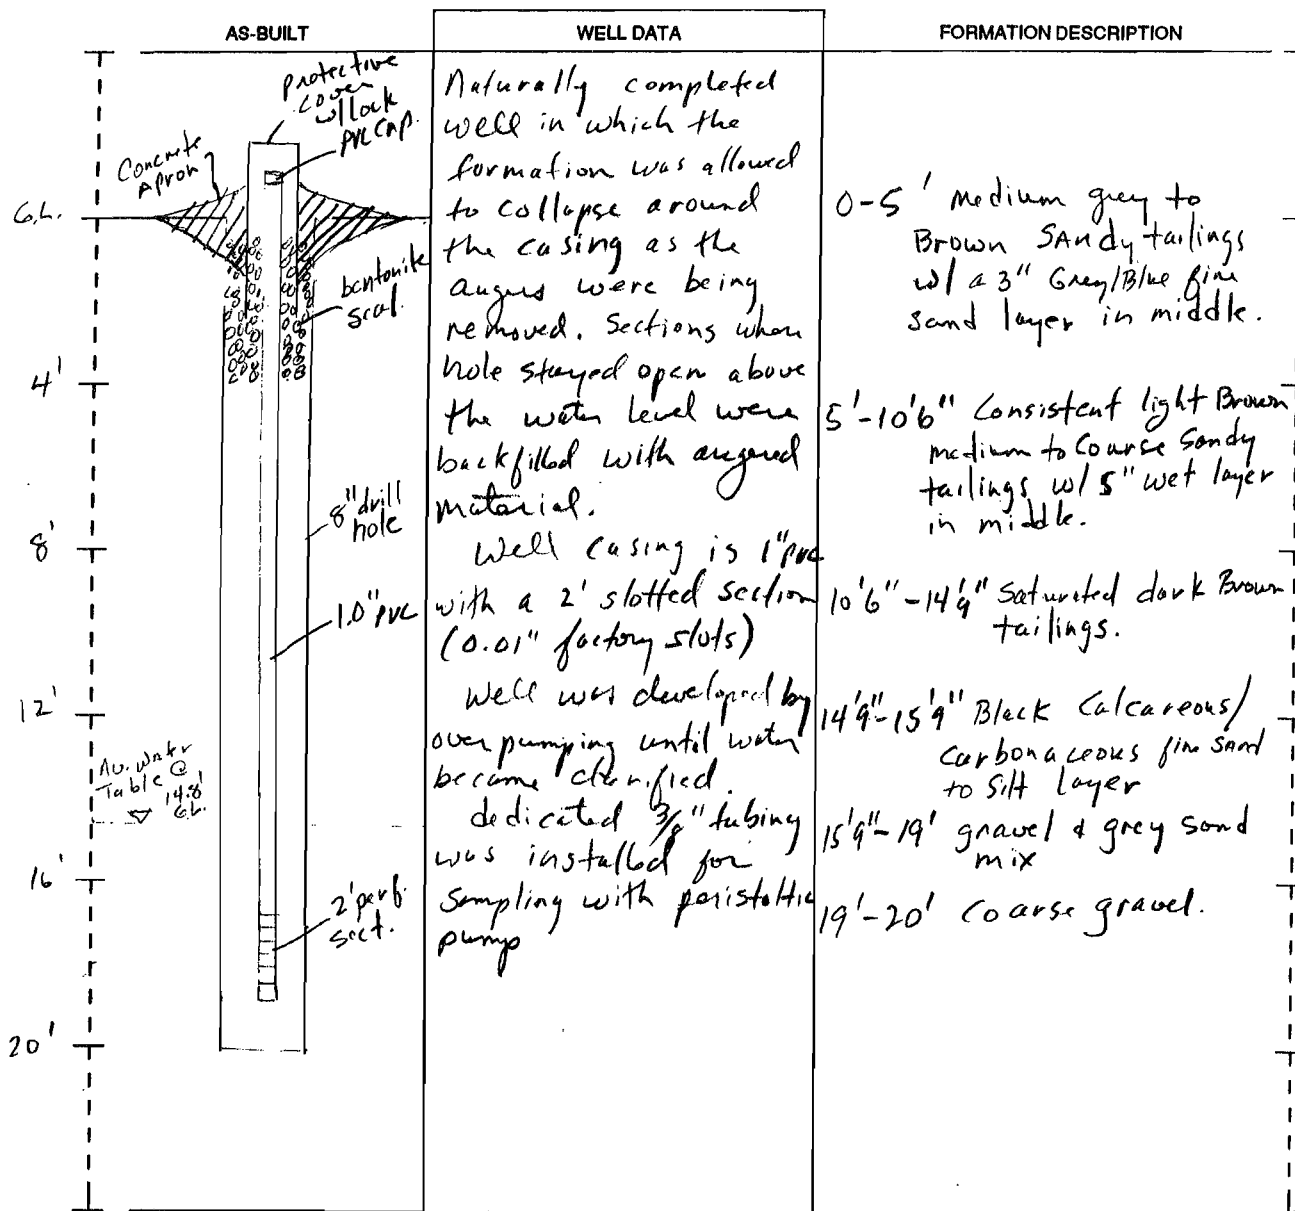 AS-BUILT
WELL DATA
FORMATION DESCRIPTION
protective
cover
w/lock
PVC cap.
Concrete
Apron
G.L.
bentonite
seal.
4'
8" drill
hole
8'
1.0" PVC
12'
Av. Water
Table @
14.8'
G.L.
16'
2' perf.
sect.
20'
Naturally completed
well in which the
formation was allowed
to collapse around
the casing as the
augers were being
removed. Sections where
hole stayed open above
the water level were
backfilled with augered
material.
Well casing is 1" pvc
with a 2' slotted section
(0.01" factory slots)
Well was developed by
over pumping until water
became clarified.
dedicated 3/8" tubing
was installed for
sampling with peristaltic
pump
0-5' Medium grey to
Brown SAndy tailings
w/ a 3" Grey/Blue fine
sand layer in middle.
5'-10'6" Consistent light Brown
medium to Coarse Sandy
tailings w/ 5" wet layer
in middle.
10'6"-14'9" Saturated dark Brown
tailings.
14'9"-15'9" Black Calcareous/
carbonaceous fine sand
to Silt layer
15'9"-19' gravel & grey sand
mix
19'-20' Coarse gravel.